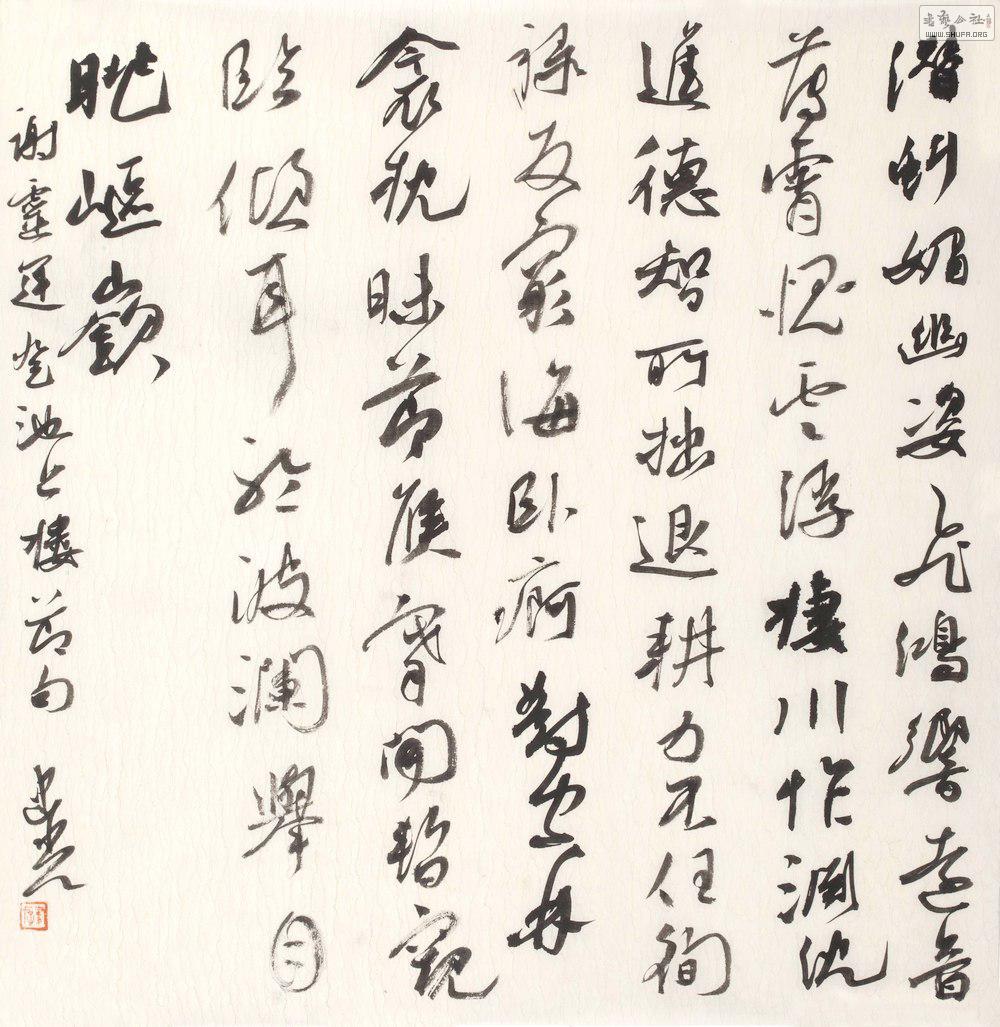 潛虯媚幽姿飛鴻響遠音
薄霄愧雲浮棲川怍淵沈
進德智所拙退耕力不任徇
祿反窮海臥痾對空林
衾枕昧節候褰開暫窺
臨傾耳聆波瀾舉目
眺嶇嶔
謝靈運登池上樓節句
WWW.SHUFA.ORG